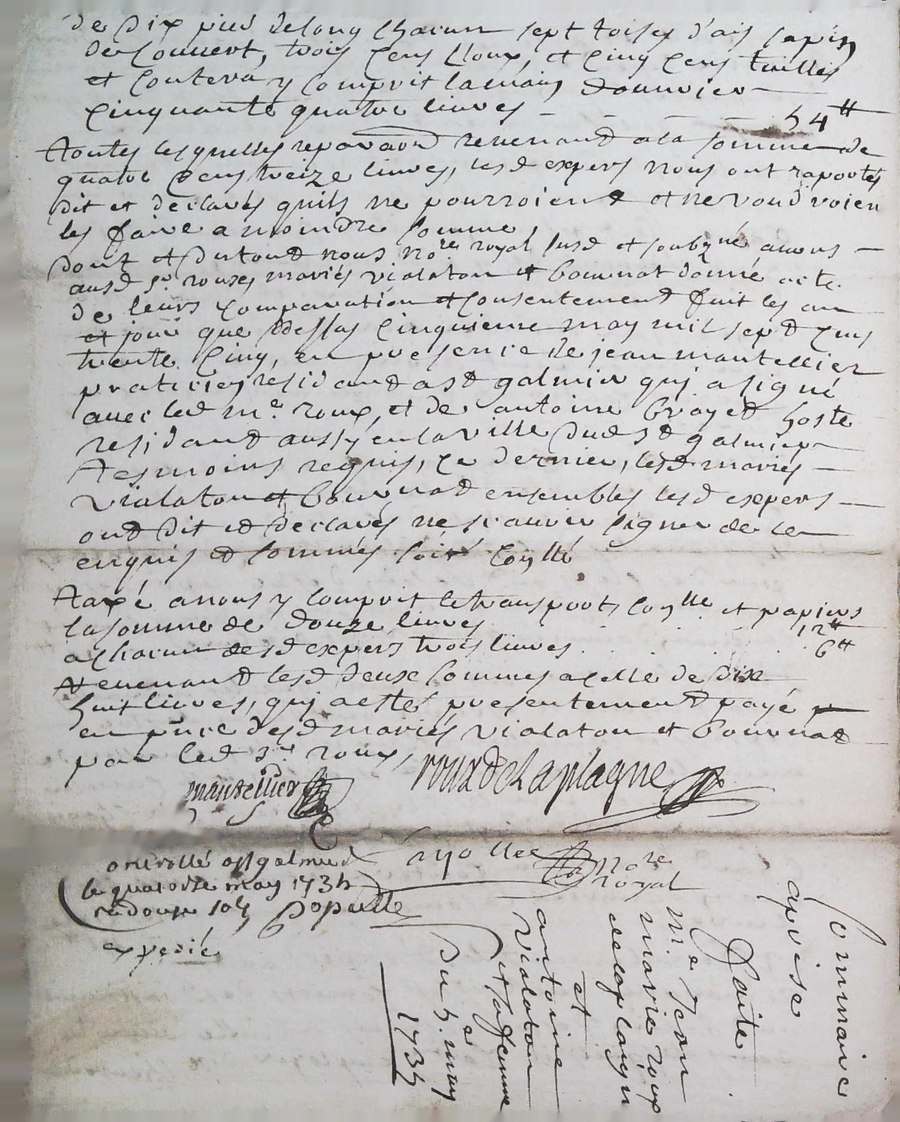 de dix pied de long chacun sept toises d'ais sapin
de couvert, trois cens cloux, et cinq cens tuilles
et coutera y comprit la main d'ouvrier
cinquante quatre livres _ _ _ _ _ 54tt
toutes lesquelles reparaõns revenand a la somme de
quatre cens treize livres, lesd expers nous ont raportés
dit et declarés quils ne pourroiend et ne voudroien
les faire a moindre somme
dont et du toud nous nore royal susd et soubzné avons
ausd sr. roux mariés vialaton et bournat donné acte
de leurs comparution et consentemend fait les an
et jour que dessus cinquieme may mil sept cens
trente cinq, en presence de jean mantellier
praticien residand a st galmier qui a signé
avec led mr. roux, et de antoine broyet hoste
residand aussy en la ville dud st galmier
tesmoins requis, ce dernier, lesd mariés
vialaton et bournad ensembles lesd expers
ond dit et declarés ne scavoir signer de ce
enquis et sommés soit coñllé
taxé a nous y comprit le transport coñlle et papiers
la somme de douze livres 12tt
a chacun desd expers trois livres . . . . . 6tt
revenand lesd deux sommes a celle de dix
huit livres, qui a etté presentemend payé
en pñce desd mariés vialaton et bournad
par led sr. roux,
mantellier
roux de la plagne
nore royal
controllé a st galmier
le quatorze may 1735
populle
expedié
Sommaire
aprise
Faite
Mr. Jean
marie roux
de la plagne
et
antoine
vialaton
et sa femme
Du 5e may
1735